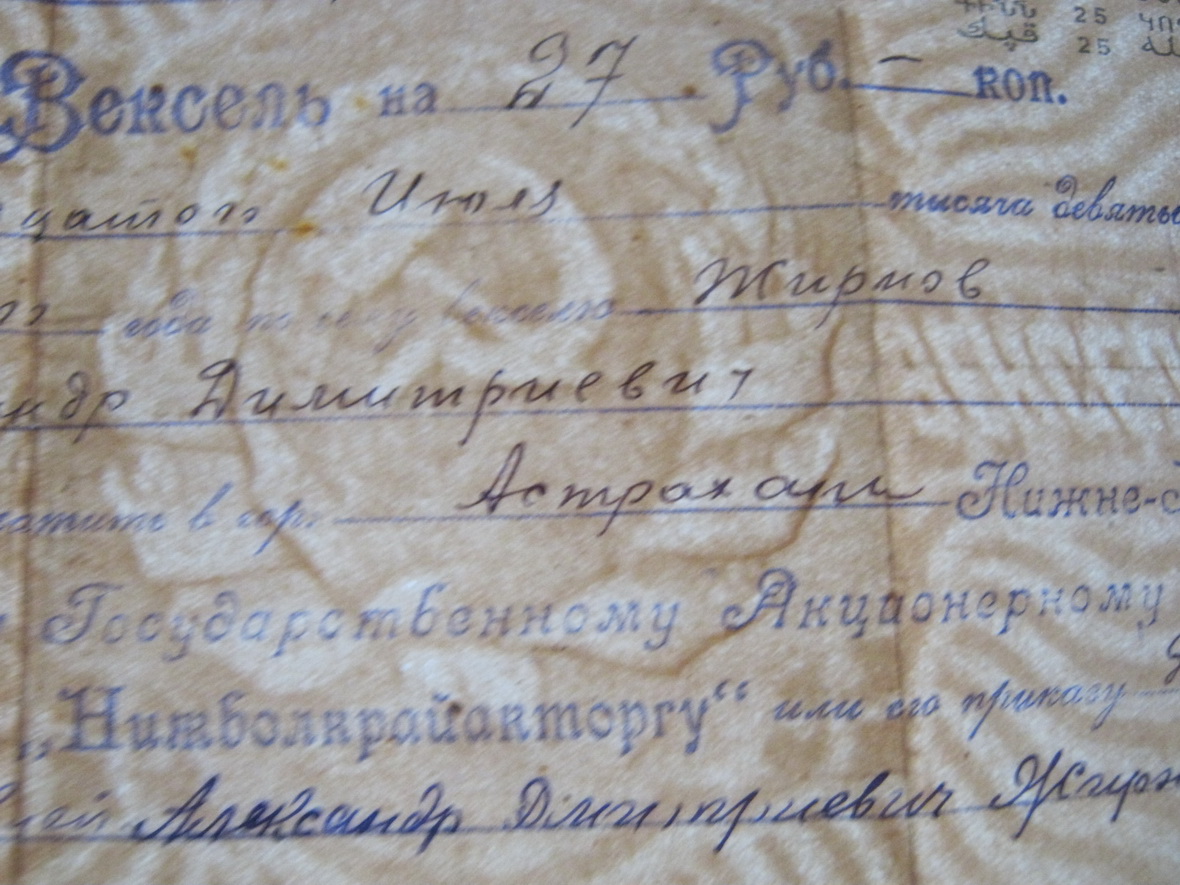 25 կոպ
قپك 25
Вексель на 27 Руб. – коп.
цатого Июля тысяча девятьс
года по сему векселю Жирнов
ндр Димитриевич
латить в гор. Астрахани Нижне-
Государственному Акционерному
„Нижволкрайакторгу“ или его приказу
Александр Дмитриевич Жирн